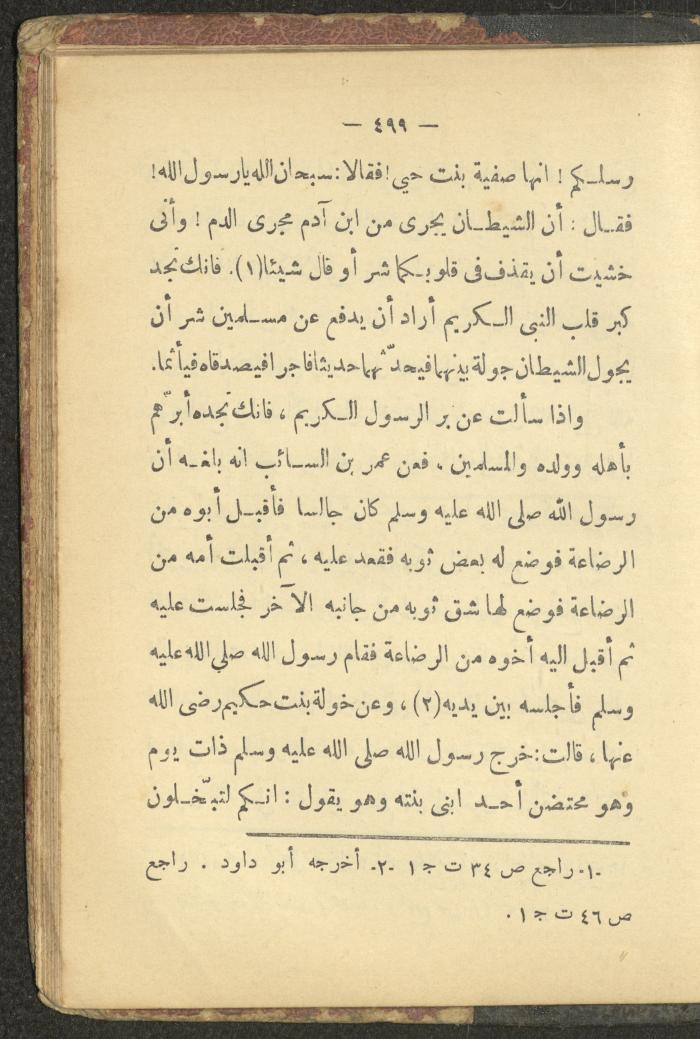 — ٤٩٩ —
رسلكم ! انها صفية بنت حيي ! فقالا : سبحان الله يا رسول الله !
فقال : أن الشيطان يجرى من ابن آدم مجرى الدم ! وأنى
خشيت أن يقذف فى قلوبكما شر أو قال شيئا (١) . فانك تجد
كبر قلب النبى الكريم أراد أن يدفع عن مسلمين شر أن
يجول الشيطان جولة بينهما فيحدّثهما حديثا فاجرا فيصدقاه فيأثما .
واذا سألت عن بر الرسول الكريم ، فانك تجده أبرّهم
بأهله وولده والمسلمين ، فعن عمر بن السائب انه بلغه أن
رسول الله صلى الله عليه وسلم كان جالسا فأقبل أبوه من
الرضاعة فوضع له بعض ثوبه فقعد عليه ، ثم أقبلت أمه من
الرضاعة فوضع لها شق ثوبه من جانبه الآخر فجلست عليه
ثم أقبل اليه أخوه من الرضاعة فقام رسول الله صلي الله عليه
وسلم فأجلسه بين يديه (٢) ، وعن خولة بنت حكيم رضى الله
عنها ، قالت : خرج رسول الله صلى الله عليه وسلم ذات يوم
وهو محتضن أحد ابنى بنته وهو يقول : انكم لتبخّلون
-١- راجع ص ٣٤ ت ج ١ -٢- أخرجه أبو داود . راجع
ص ٤٦ ت ج ١ .